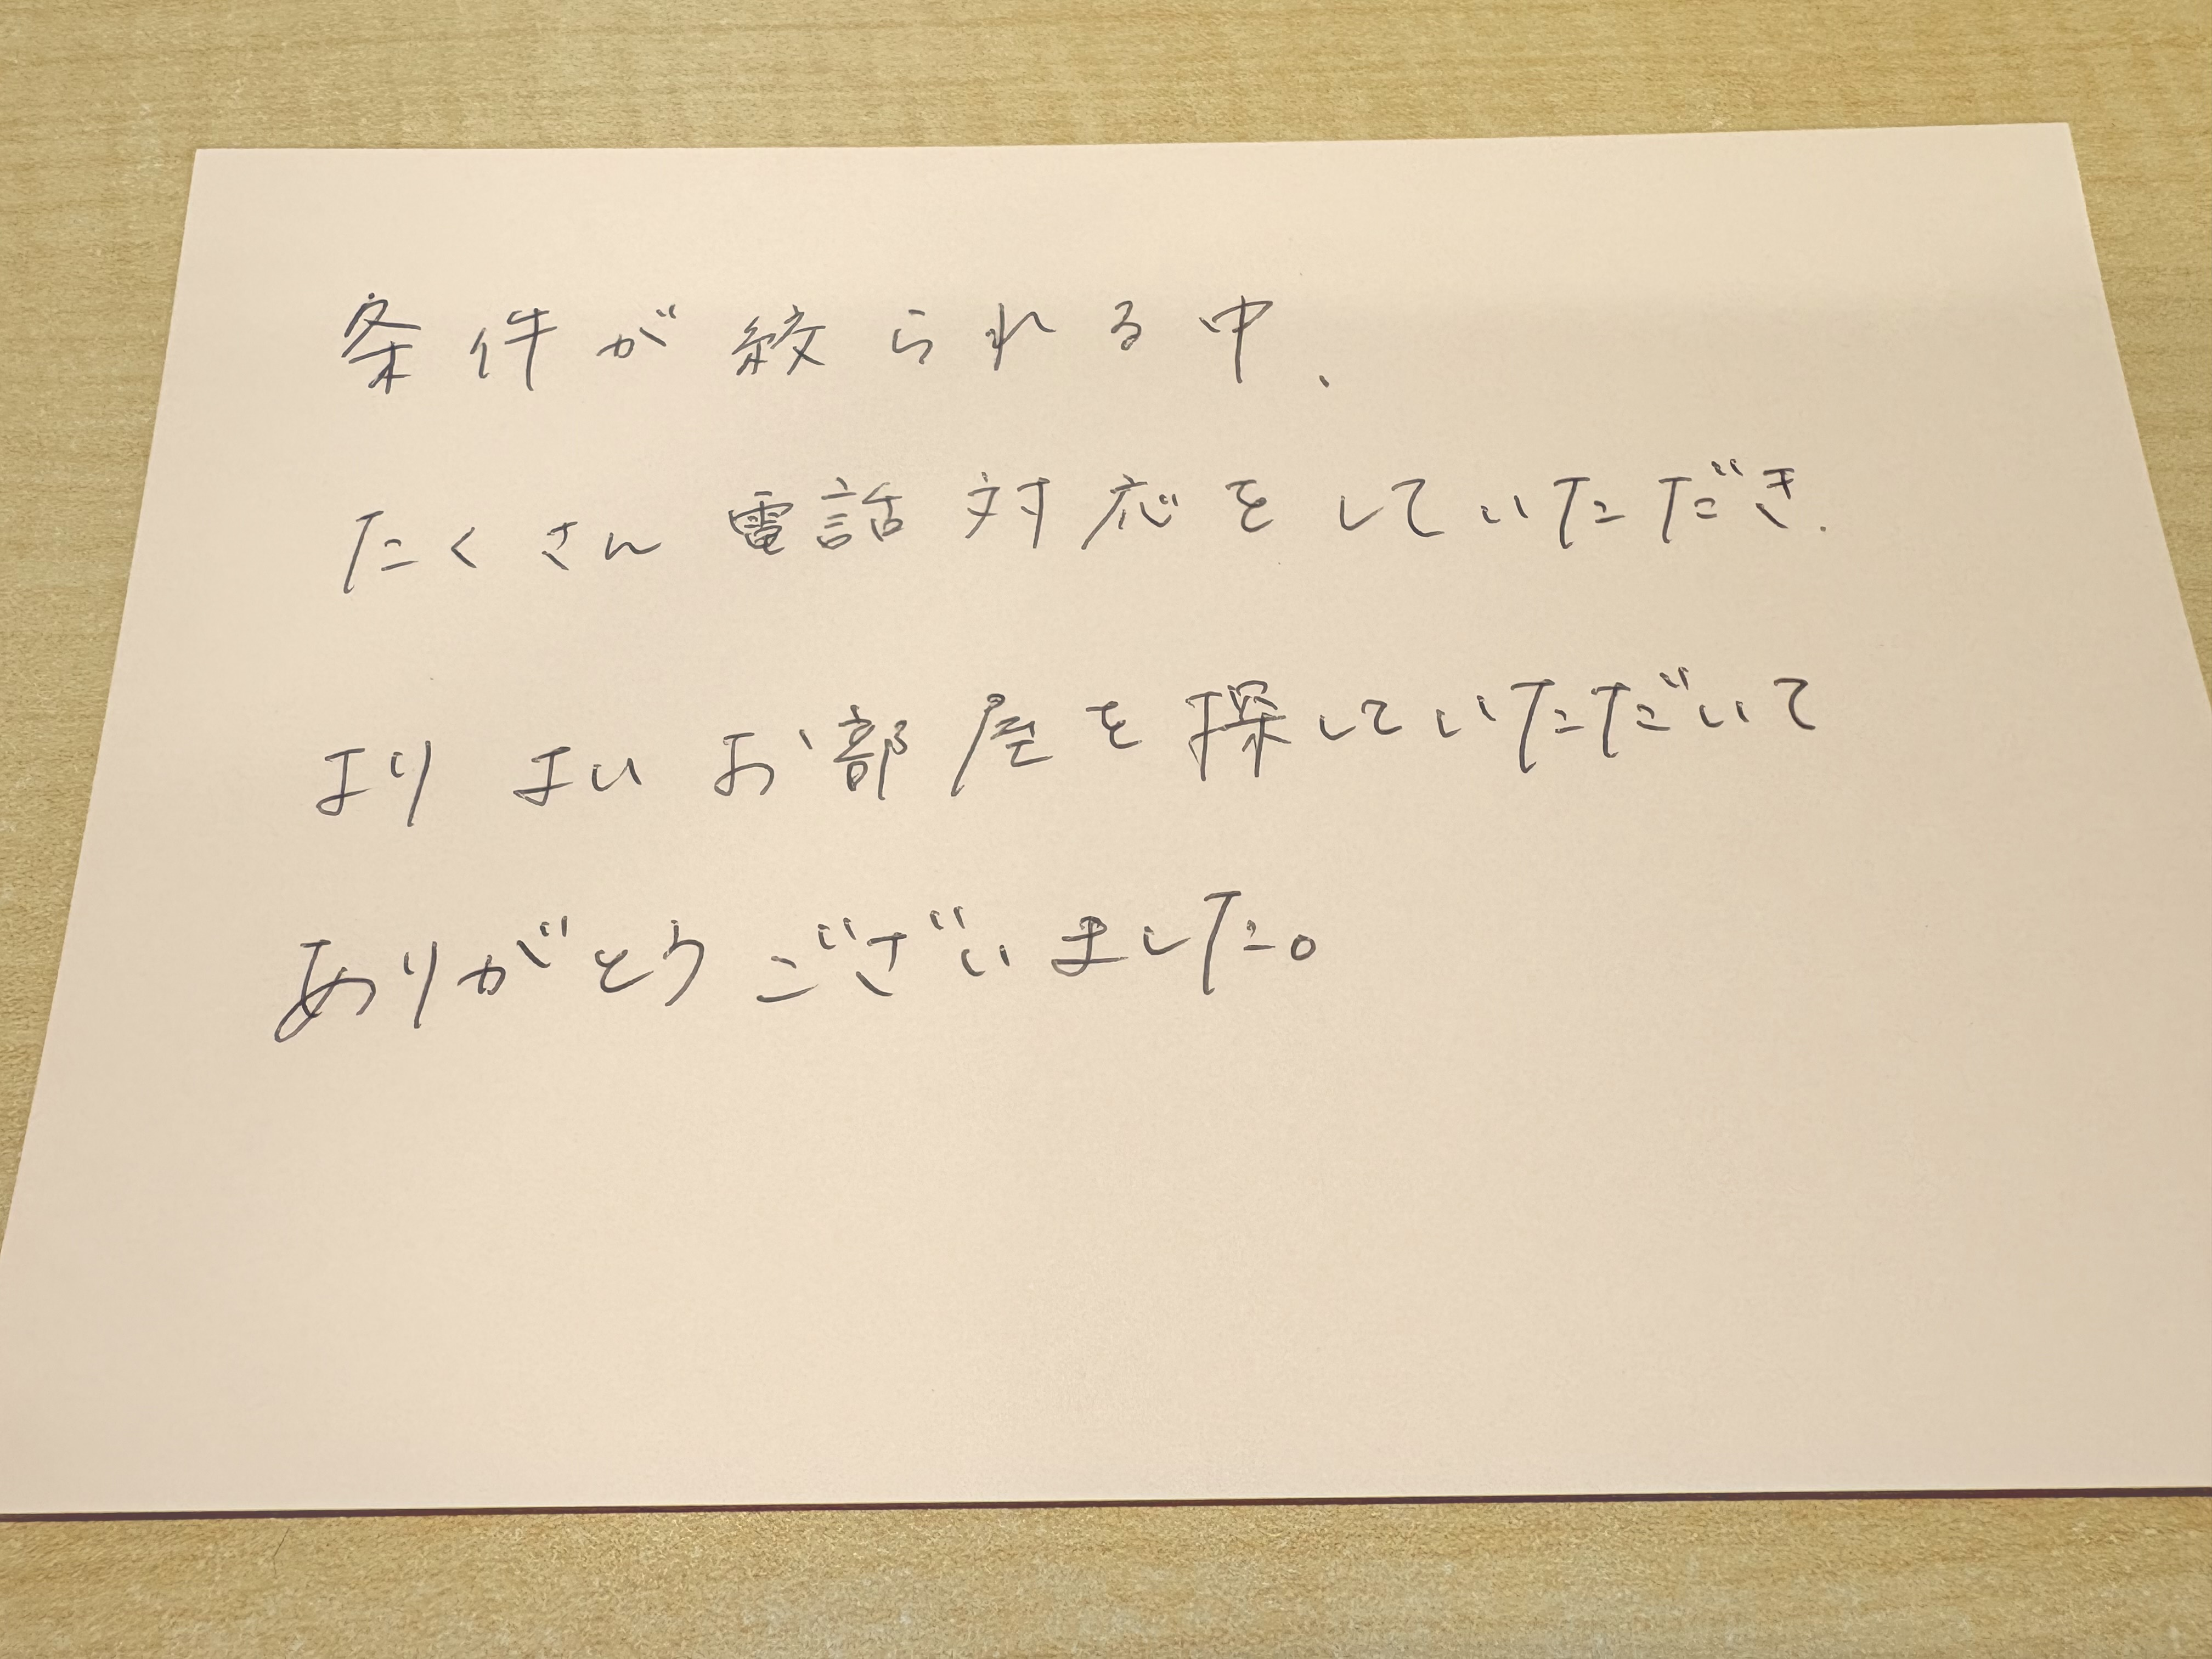 条件が絞られる中、
たくさん電話対応をしていただき、
よりよいお部屋を探していただいて
ありがとうございました。